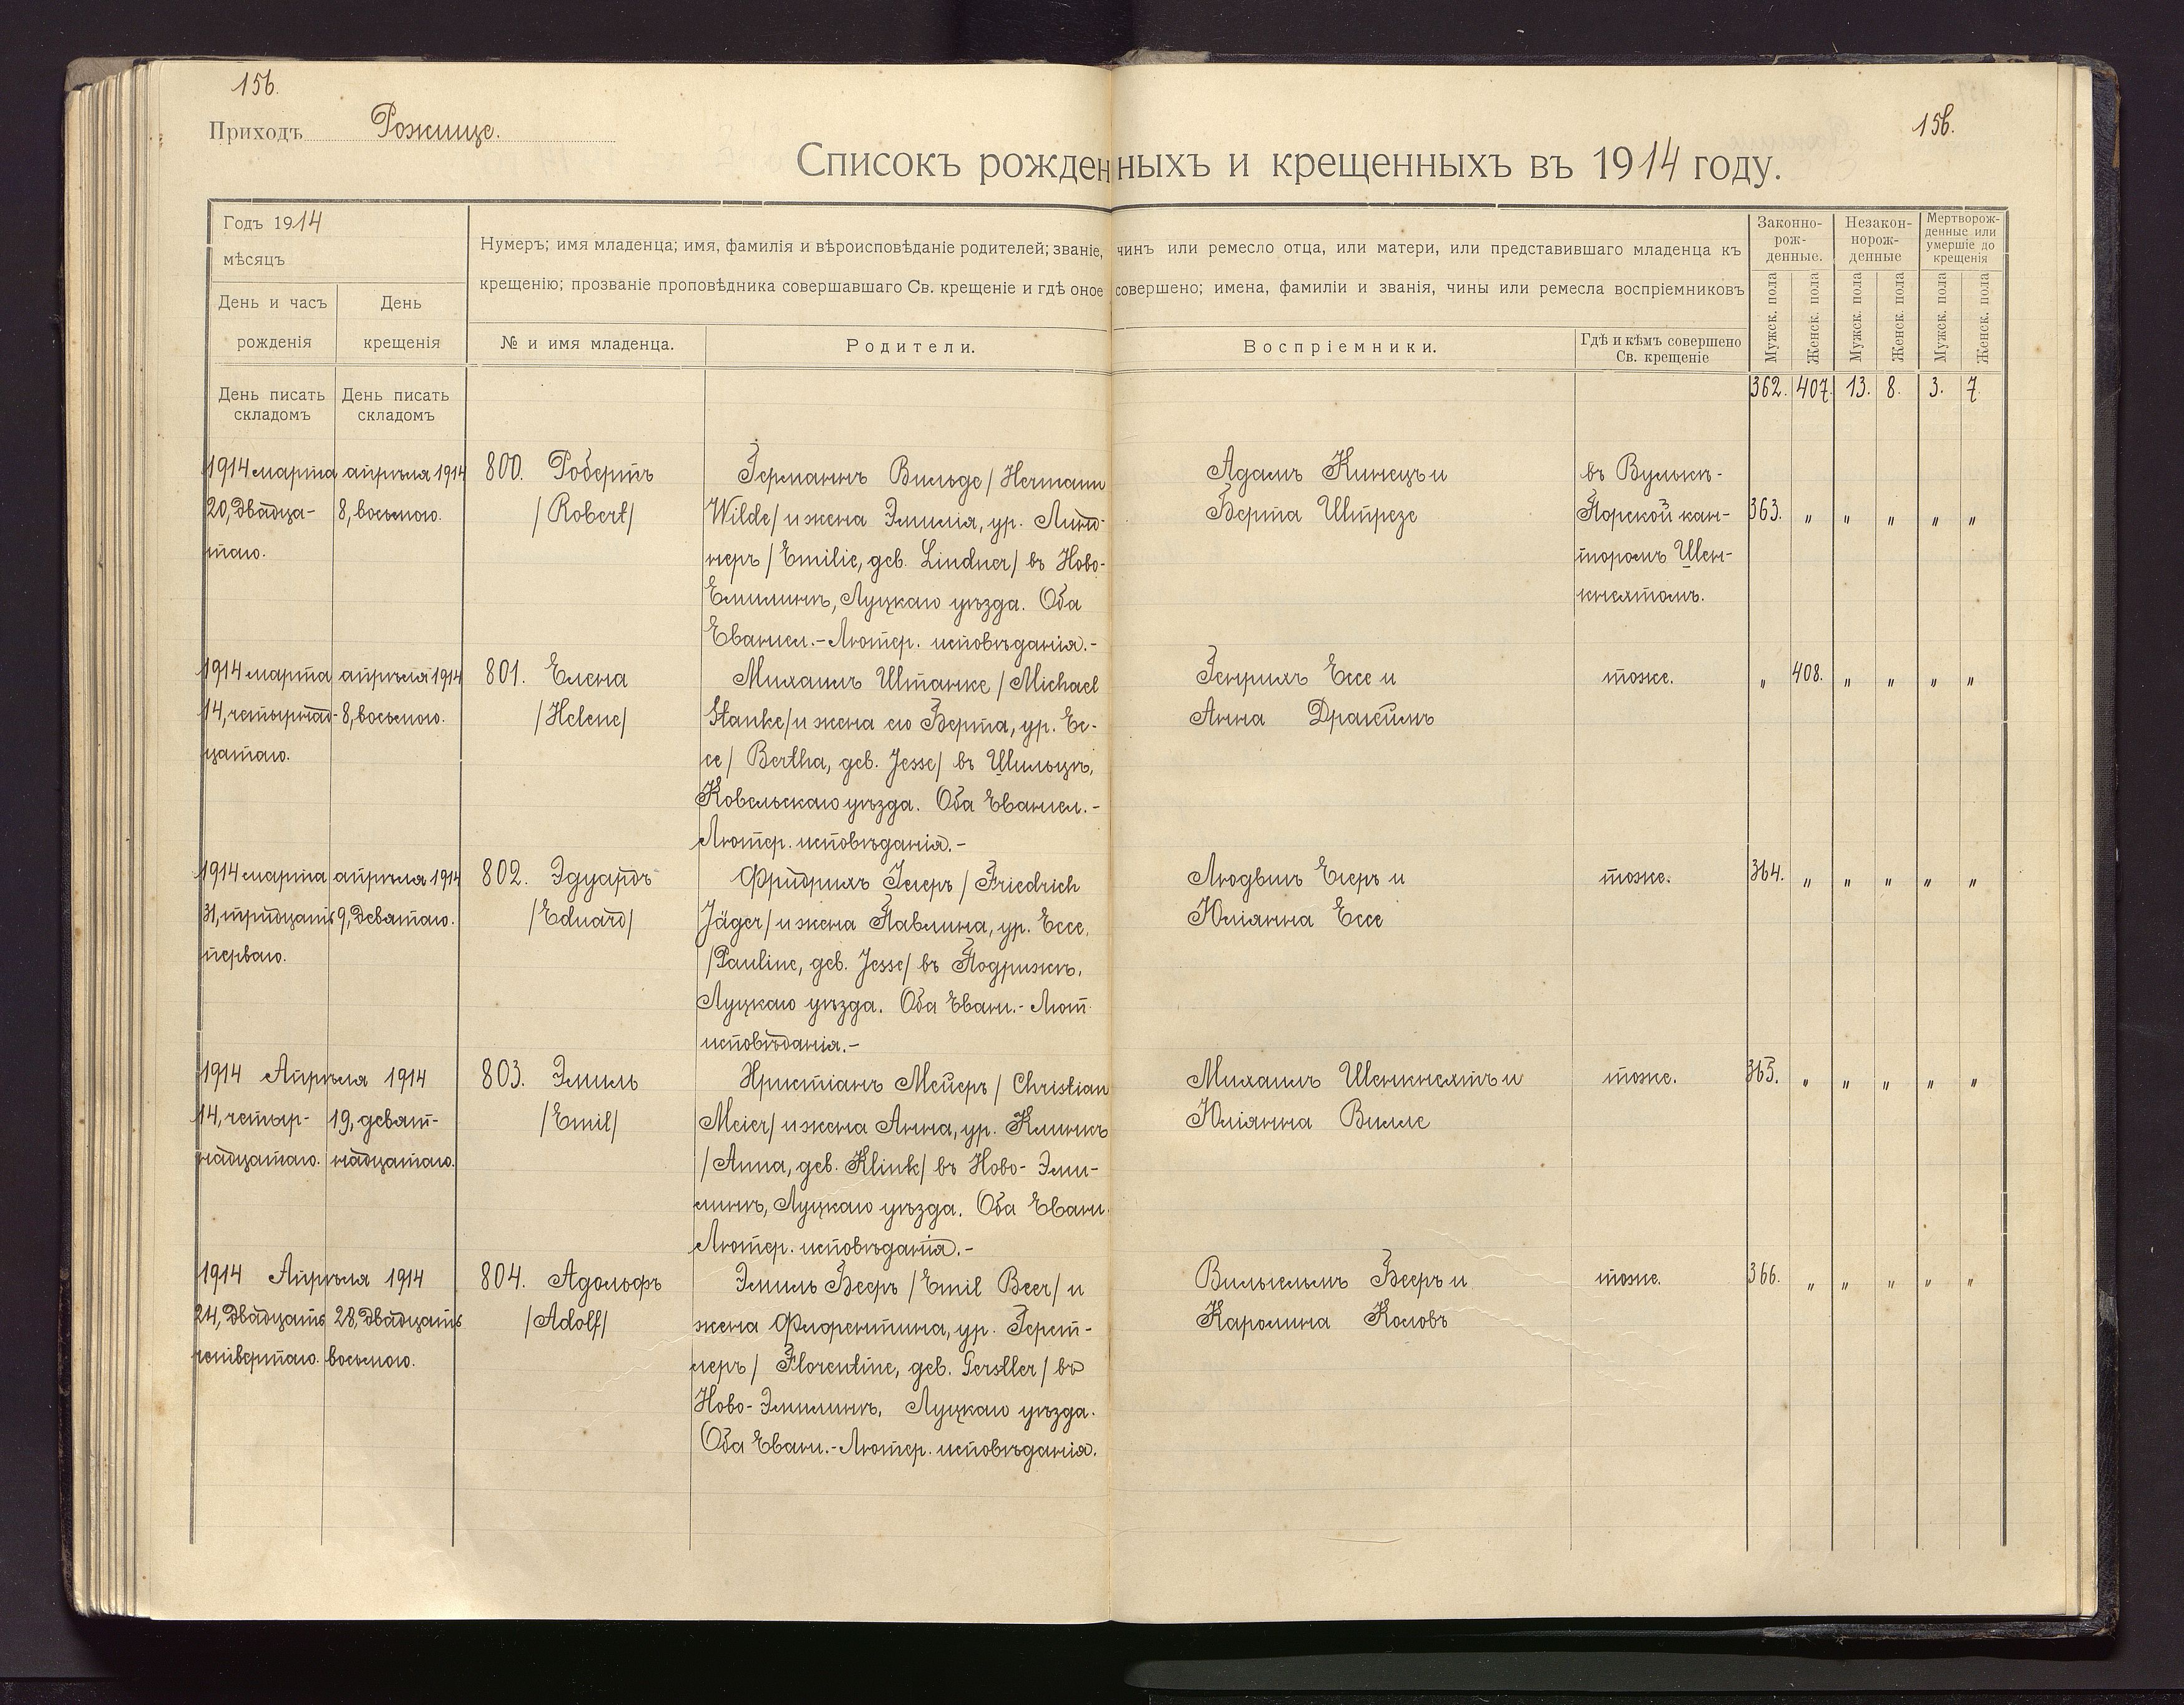 156.
156.
Приходъ Рожище.
Списокъ рожденныхъ и крещенныхъ въ 1914 году.
Годъ 1914
мѣсяцъ
День и часъ рожденія
День крещенія
Нумеръ; имя младенца; имя, фамилія и вѣроисповѣданіе родителей; званіе, чинъ или ремесло отца, или матери, или представившаго младенца къ
крещенію; прозваніе проповѣдника совершавшаго Св. крещеніе и гдѣ оное совершено; имена, фамиліи и званія, чины или ремесла воспріемниковъ
№ и имя младенца.
Родители.
Воспріемники.
Гдѣ и кѣмъ совершено
Св. крещеніе
Законно-
рож-
денные.
Незакон-
норож-
денные
Мертворож-
денные или
умершіе до
крещенія
Мужск. пола
Женск. пола
Мужск. пола
Женск. пола
Мужск. пола
Женск. пола
День писать
складомъ
День писать
складомъ
362. 407. 13. 8. 3. 7.
1914 марта
20, двадца-
таго.
апрѣля 1914
8, восьмого.
800. Робертъ
/Robert/
Германнъ Вильде /Hermann
Wilde/ и жена Эмилія, ур. Линд-
неръ /Emilie, geb. Lindner/ въ Ново-
Емилинѣ, Луцкаго уѣзда. Оба
Евангел.-Лютер. исповѣданія.-
Адамъ Кинецъ и
Берта Штрезе
въ Вульки-
Порской кан-
торомъ Шен-
кнехтомъ.
363. " " " " "
1914 марта
14, четырнад-
цатаго.
апрѣля 1914
8, восьмого.
801. Елена
/Helene/
Михаилъ Штанке /Michael
Stanke/ и жена его Берта, ур. Ес-
се /Bertha, geb. Jesse/ въ Шильцѣ,
Ковельскаго уѣзда. Оба Евангел.-
Лютер. исповѣданія.-
Генрихъ Ессе и
Анна Дракеимъ
тоже.
" 408. " " " "
1914 марта
31, тридцать
перваго.
апрѣля 1914
9, девятаго.
802. Эдуардъ
/Eduard/
Фридрихъ Іегеръ /Friedrich
Jäger/ и жена Павлина, ур. Ессе,
/Pauline, geb. Jesse/ въ Подрижѣ,
Луцкаго уѣзда. Оба Еванг.-Лют.
исповѣданія.-
Людвигъ Егеръ и
Юліянна Ессе
тоже.
364. " " " " "
1914 Апрѣля 1914
14, четыр-
надцатаго.
19, девят-
надцатаго.
803. Эмиль
/Emil/
Христіанъ Мейеръ /Christian
Meier/ и жена Анна, ур. Клинкъ
/Anna, geb. Klink/ въ Ново-Эми-
линѣ, Луцкаго уѣзда. Оба Еванг.
Лютер. исповѣданія.-
Михаилъ Шенкнехтъ и
Юліянна Вилле
тоже.
365. " " " " "
1914 Апрѣля 1914
24, двадцать
четвертаго.
28, двадцать
восьмого.
804. Адольфъ
/Adolf/
Эмиль Бееръ /Emil Beer/ и
жена Флорентина, ур. Герст-
леръ /Florentine, geb. Gerstler/ въ
Ново-Эмилинѣ, Луцкаго уѣзда.
Оба Еванг.-Лютер. исповѣданія.
Вильгельмъ Бееръ и
Каролина Кословъ
тоже.
366. " " " " "